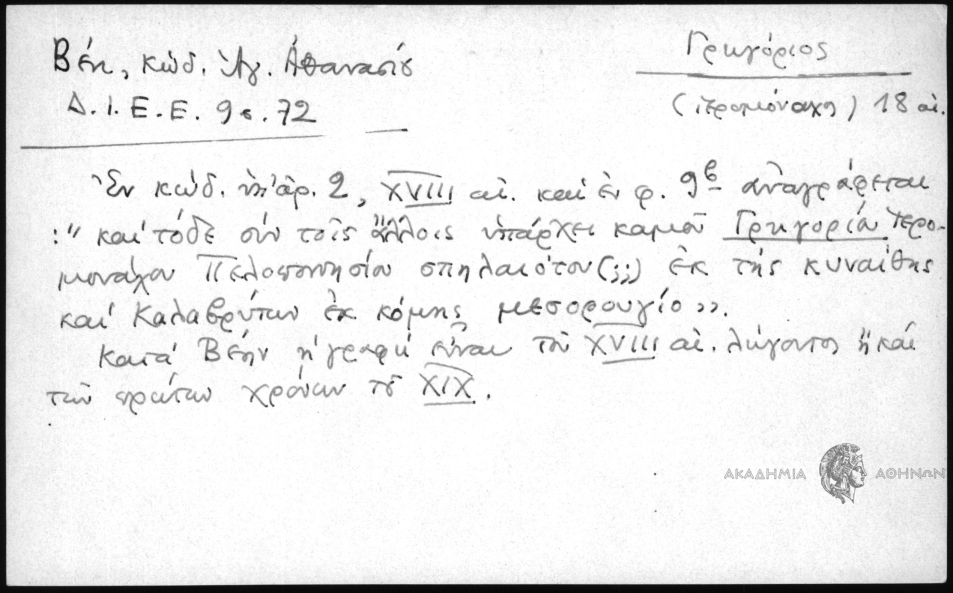 Βέη, κώδ. Ἁγ. Ἀθανασίου
Δ.Ι.Ε.Ε. 9ς. 72
Γρηγόριος
(ἱερομόναχη) 18 αἰ.
Ἐν κώδ. ὑπ' ἀρ. 2, XVIII αἰ. καὶ ἐν φ. 9β ἀναγράφεται
:" καὶ τόδε σὺν τοῖς ἄλλοις ὑπάρχει καμοῦ Γρηγορίου Ἱερο-
μονάχου Πελοποννησίου σπηλαιότου(;;) ἐκ τῆς κυναίθης
καὶ Καλαβρύτων ἐκ κόμης μεσορουγίο».
Κατὰ Βέην ἡ γραφὴ εἶναι τοῦ XVIII αἰ. λήγοντος ἢ καὶ
τῶν πρώτων χρόνων τοῦ XIX.
ΑΚΑΔΗΜΙΑ ΑΘΗΝΩΝ